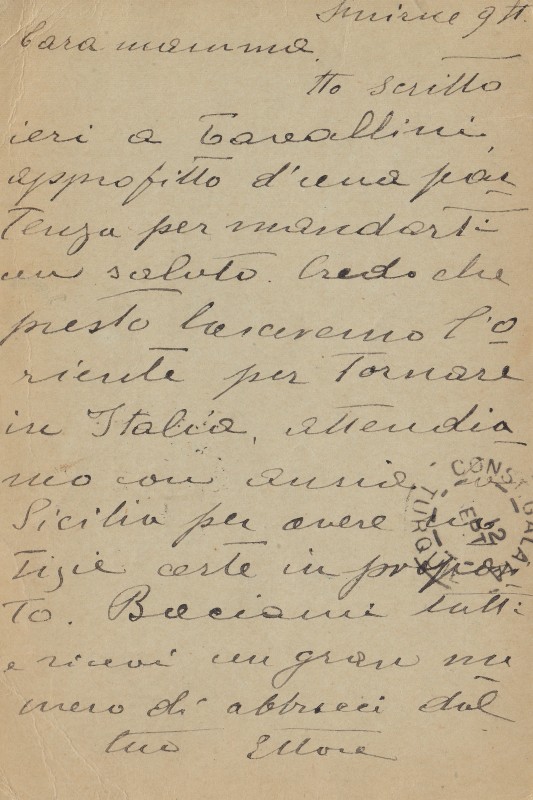 Smirne 9 tt.
Cara mamma,
Ho scritto
ieri a Cavallini,
approfitto d'una par
tenza per mandarti
un saluto. Credo che
presto lasceremo l'O
riente per tornare
in Italia, attendia
mo con ansia
Sicilia per avere no
tizie certe in proposi
to. Baciami tutti
e ricevi un gran nu
mero di abbracci dal
tuo Ettore
CONST GALATA
12
SEPT
TURQUIE